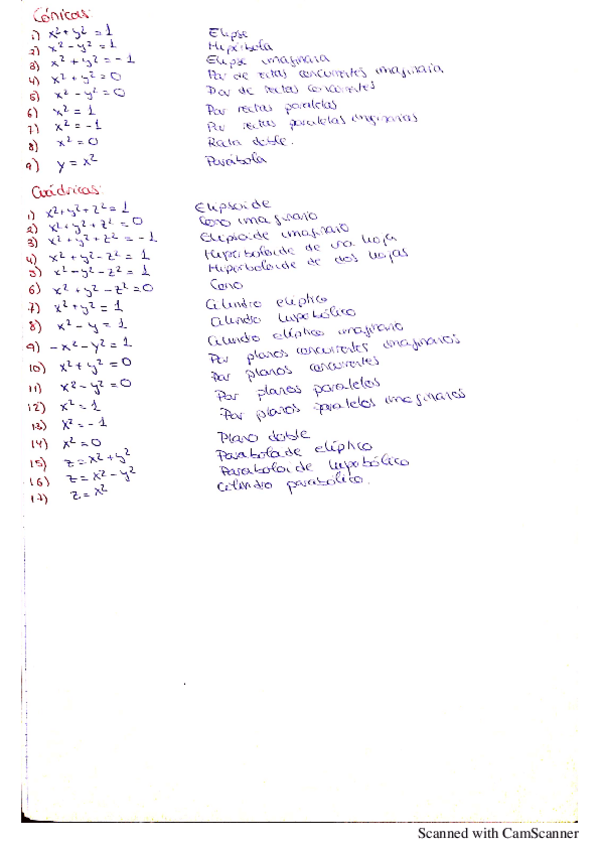 Cónicas:
1) x²+y² = 1 Elipse
2) x² - y² = 1 Hipérbola
3) x² + y² = -1 Elipse imaginaria
4) x² + y² = 0 Par de rectas concurrentes imaginarias
5) x² - y² = 0 Par de rectas concurrentes
6) x² = 1 Par rectas paralelas
7) x² = -1 Par rectas paralelas imaginarias
8) x² = 0 Recta doble.
9) y = x² Parábola
Cuádricas:
1) x²+y²+z² = 1 Elipsoide
2) x²+y²+z² = 0 Cono imaginario
3) x²+y²+z² = -1 Elipsoide imaginario
4) x²+y²-z² = 1 Hiperboloide de una hoja
5) x²-y²-z² = 1 Hiperboloide de dos hojas
6) x²+y²-z²=0 Cono
7) x²+y² = 1 Cilindro elíptico
8) x² - y = 1 Cilindro hiperbólico
9) -x²-y² = 1 Cilindro elíptico imaginario
10) x²+y² = 0 Par planos concurrentes imaginarios
11) x²-y² = 0 Par planos concurrentes
12) x² = 1 Par planos paralelos
13) x² = -1 Par planos paralelos imaginarios
14) x² = 0 Plano doble
15) z = x²+y² Paraboloide elíptico
16) z = x² - y² Paraboloide hiperbólico
17) z = x² Cilindro parabólico.
Scanned with CamScanner